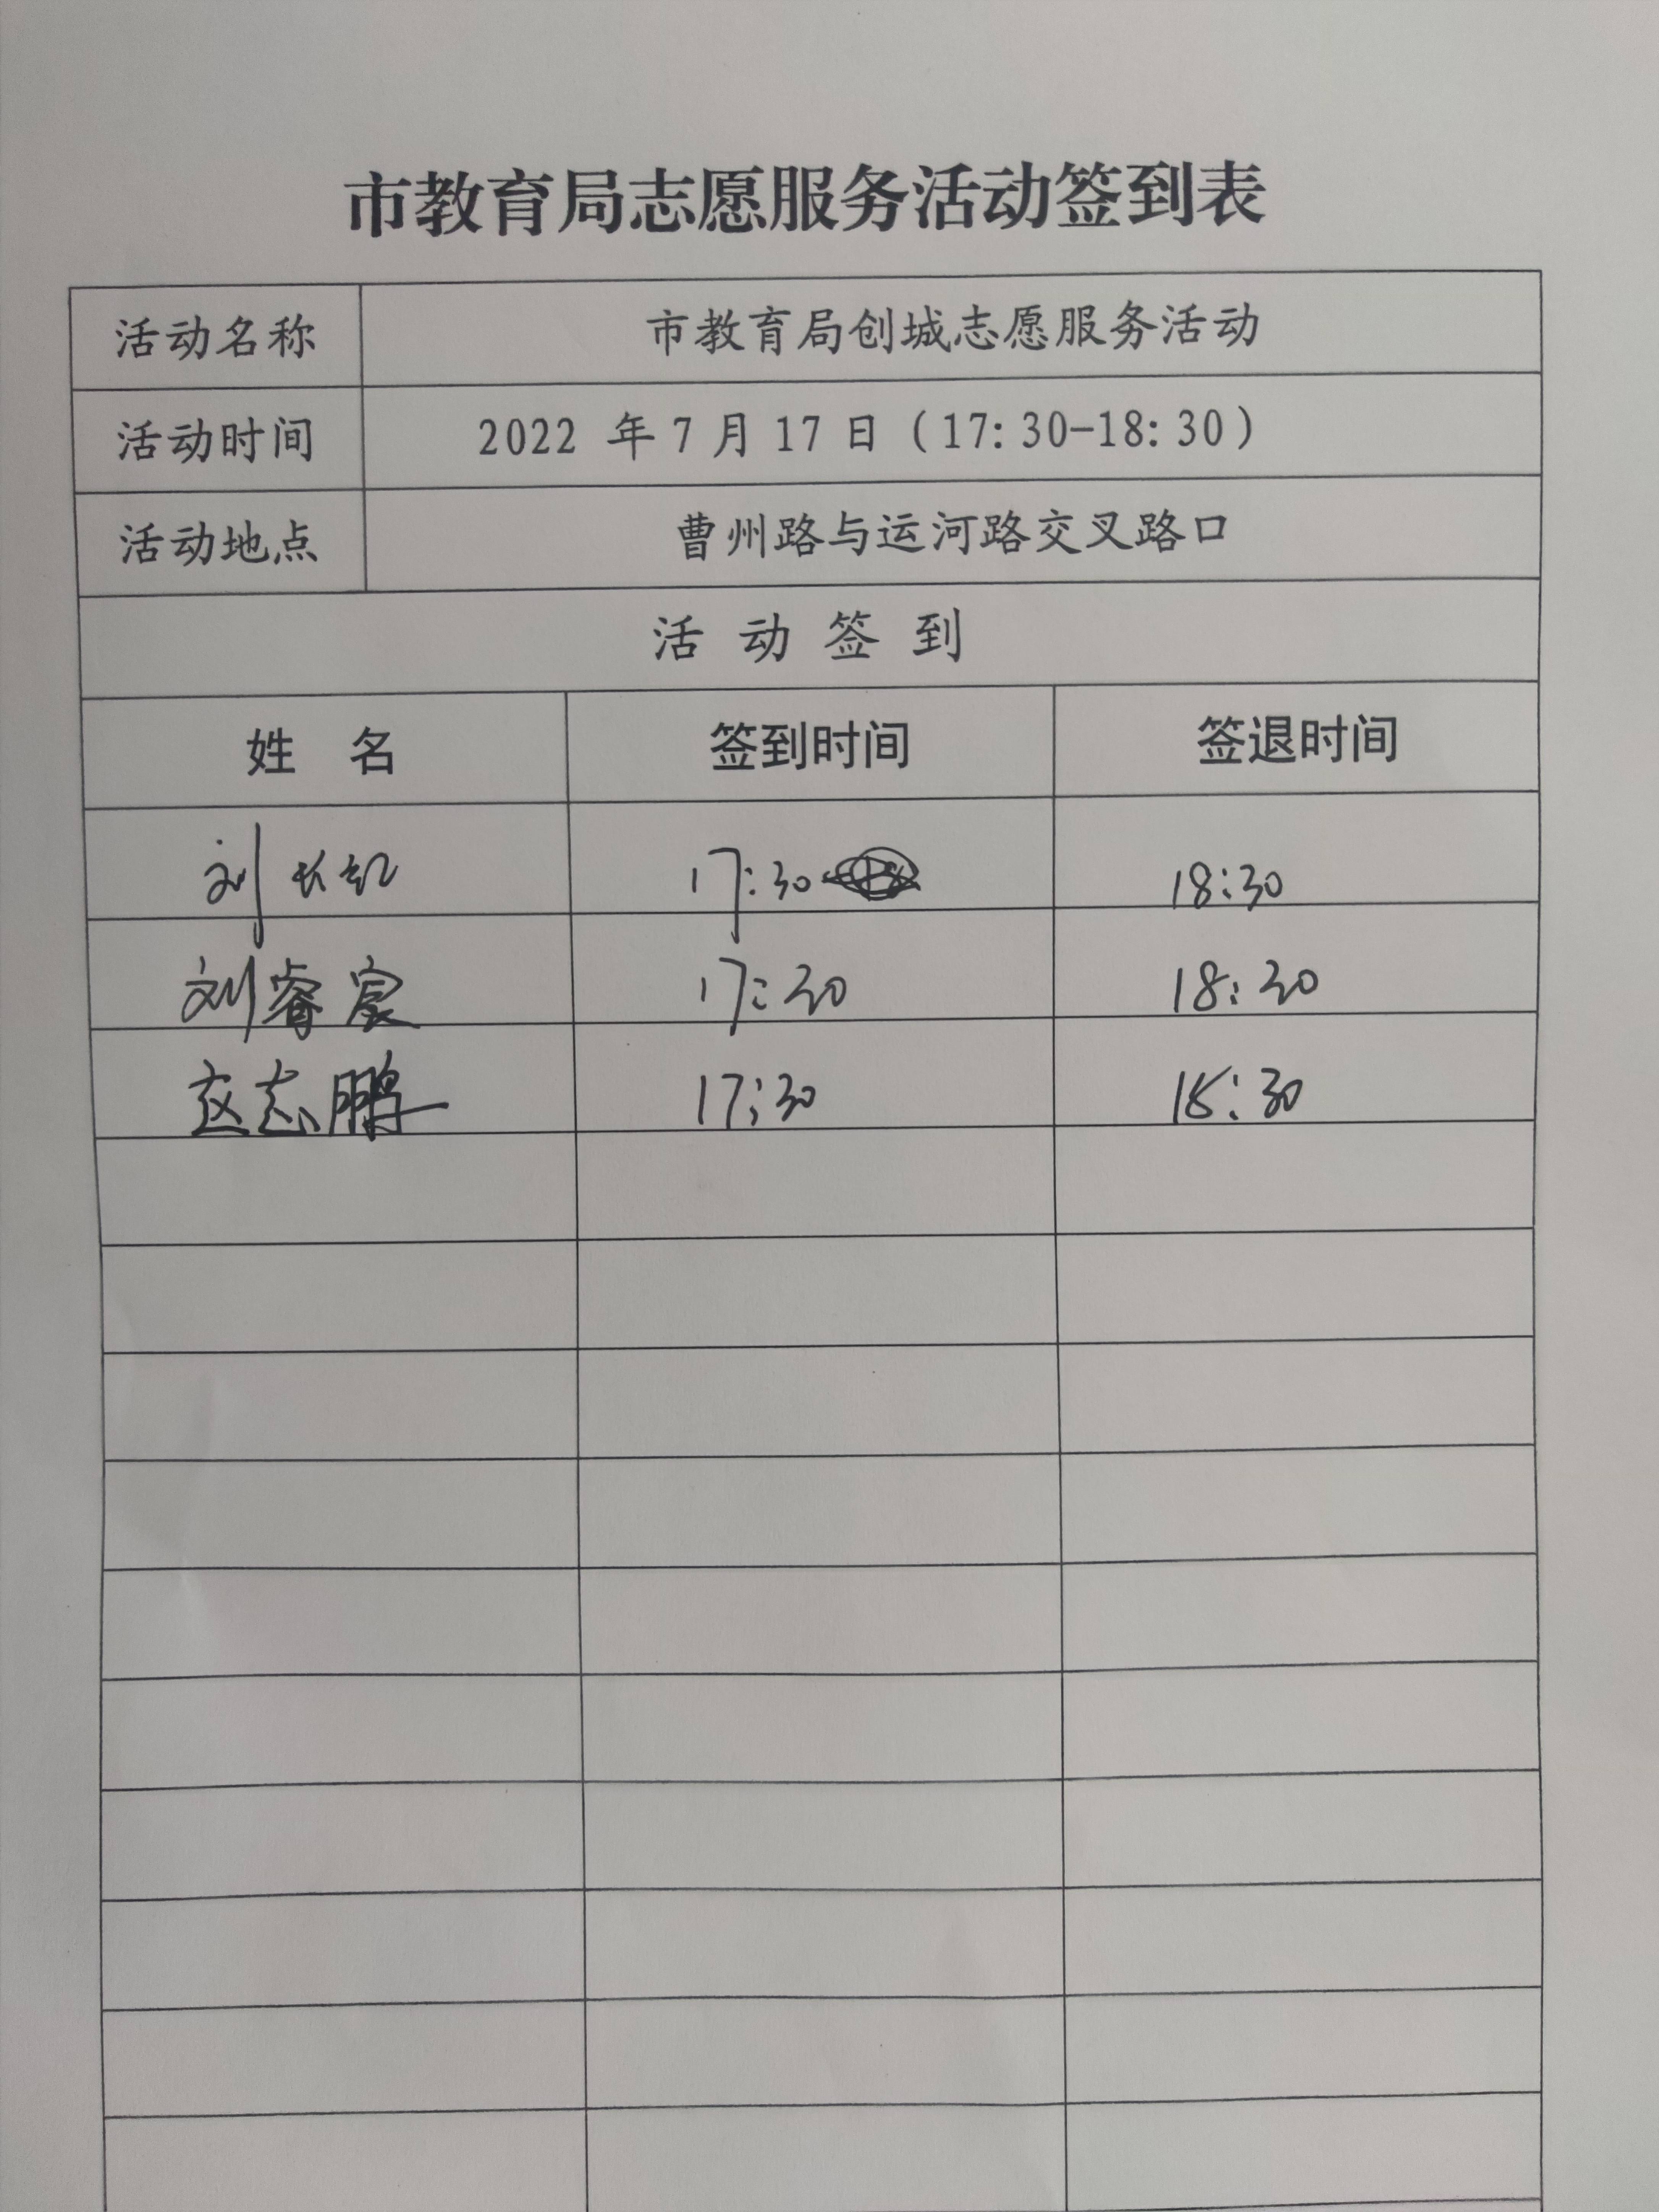 市教育局志愿服务活动签到表
活动名称 市教育局创城志愿服务活动
活动时间 2022 年 7 月 17 日（17:30-18:30）
活动地点 曹州路与运河路交叉路口
活 动 签 到
姓 名 签到时间 签退时间
刘长红 17:30 18:30
刘睿宸 17:30 18:30
赵志鹏 17:30 18:30